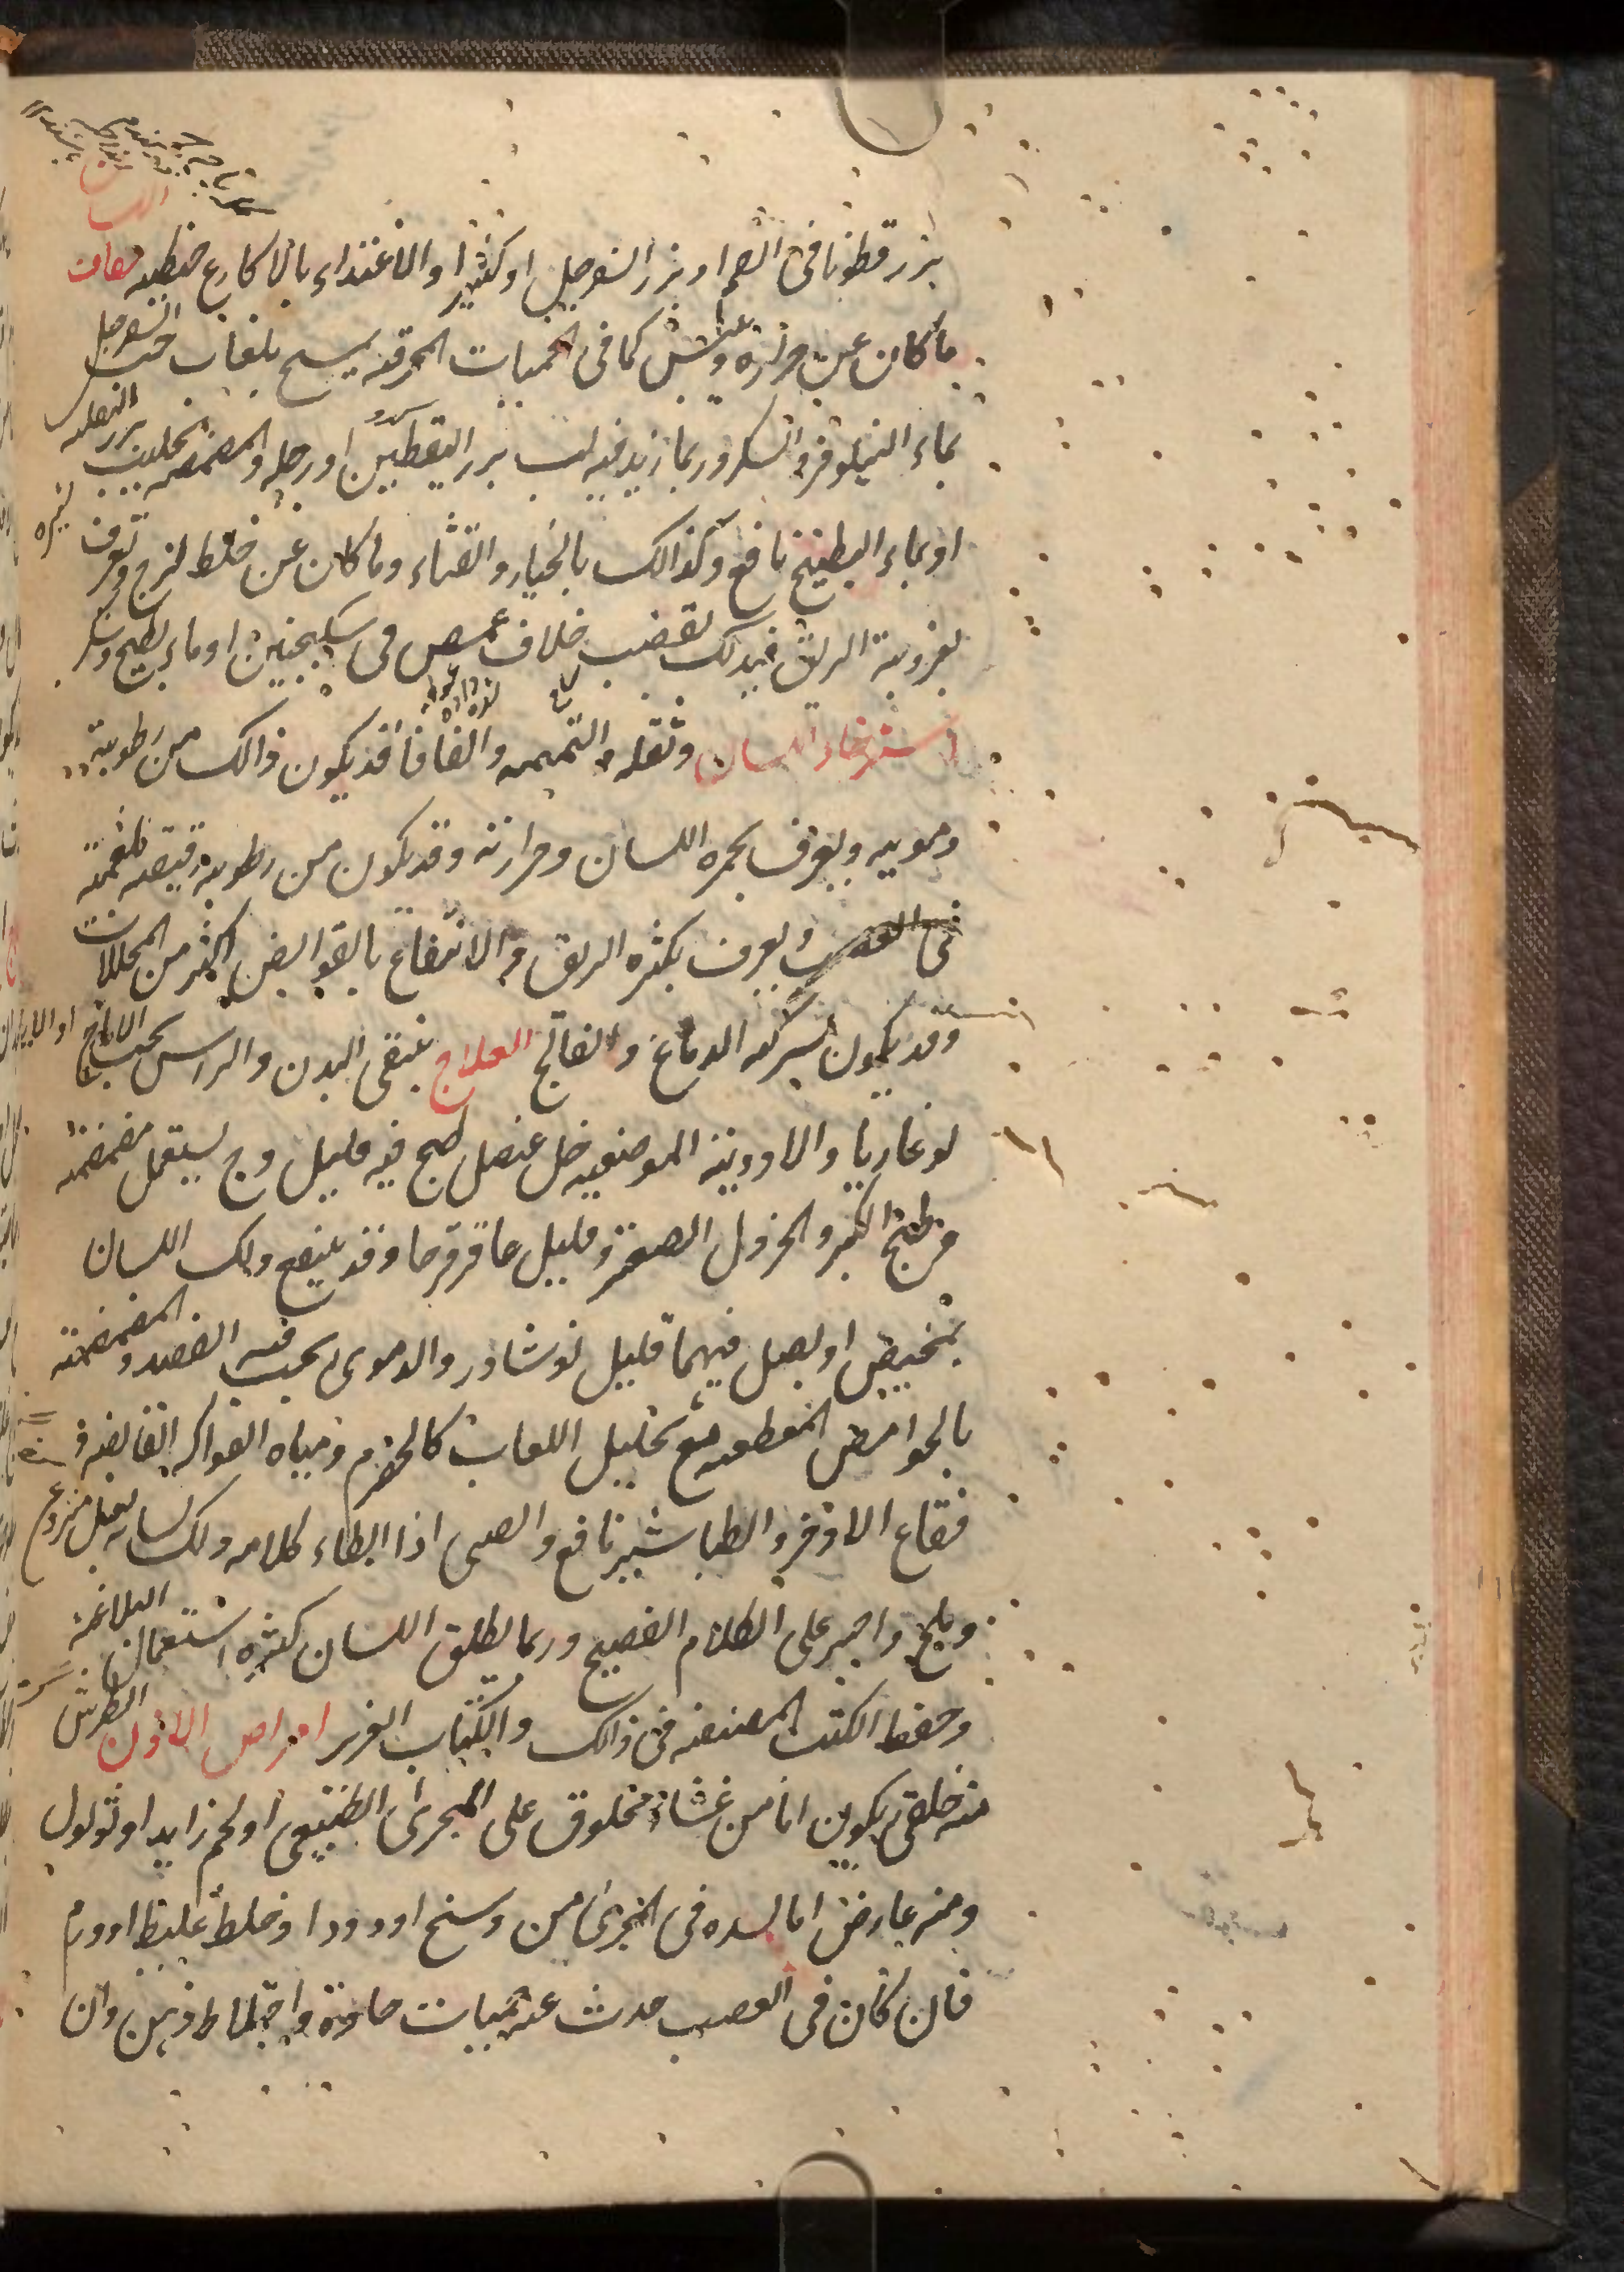 بزر قطونا فی الفم او بزر السفرجل او کثیرا والاغتذاء بالاکارع حنطیه جفاف اللسان
ما کان عن حرارة وعطش کما فی الحمیات المحرقه یمسح بلعاب حب السفرجل
بماء النیلوفر والسکر وربما زید فیه لب بزر الیقطین او رجله والمضمضه بحلیب بزر البقله
او بماء البطیخ نافع وکذالک بالخیار والقثاء وما کان عن خلط لزج ویعرف
لغزوبة الریق فیدلک بقضیب خلاف غمس فی سکنجبین او ماء بطیخ وسکر
استرخاء اللسان وثقله والتمتمه والفافا قد یکون ذالک من رطوبة
دمویه ویعرف بحمره اللسان وحرارته وقد یکون من رطوبة رقیقه بلغمیه
فی العصب ویعرف بکثره الریق و الانتفاع بالقوابض اکثر من المحللات
وقد یکون لشرکه الدماغ والفالج العلاج ینقی البدن والراس بحب الایارج او الایارج
لوغاریا والادویة الموضعیه خل عنصل طبخ فیه قلیل وج یستعمل مضمضه
وطبخ الکبر والخردل الصعتر وقلیل عاقرقرحا وقد ینفع دلک اللسان
بمخیض او بصل فیهما قلیل نوشادر والدموی یجب فیه الفصد والمضمضة
بالحوامض المقطعه مع تحلیل اللعاب کالحصرم ومیاه الفواکه القابضه و
فقاع الاذخر والطباشیر نافع والصبی اذا ابطاء کلامه دلک لسانه بعسل منزوع
وملح واجبر علی الکلام الفصیح وربما یطلق اللسان کثره استعمال البلاغه
وحفظ الکتب المصنفه فی ذالک والکتاب العزیز امراض الاذن الطرش
منه خلقی یکون اما من غشاء مخلوق علی المجری الطبیعی او لحم زاید او ثولول
ومنه عارض اما لسده فی المجری من وسخ او دود او خلط غلیظ او ورم
فان کان فی العصب حدث عنه حمیات حادة واختلاط ذهن وان